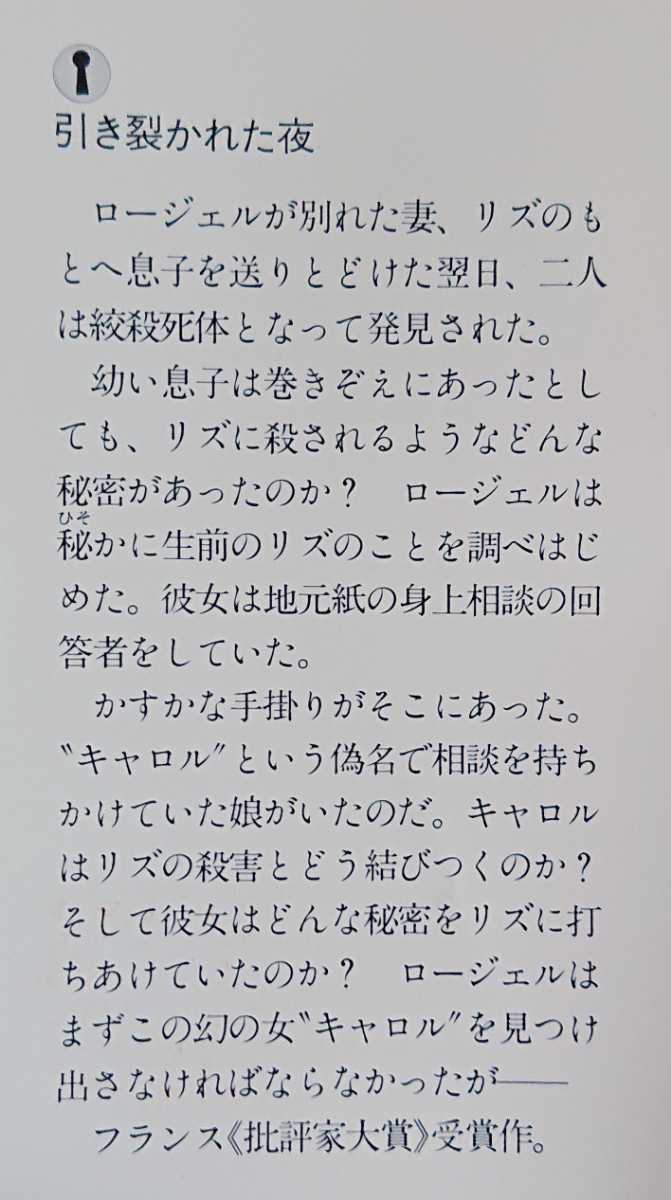 引き裂かれた夜
　ロージェルが別れた妻、リズのも
とへ息子を送りとどけた翌日、二人
は絞殺死体となって発見された。
　幼い息子は巻きぞえにあったとし
ても、リズに殺されるようなどんな
秘密があったのか？　ロージェルは
ひそ
秘かに生前のリズのことを調べはじ
めた。彼女は地元紙の身上相談の回
答者をしていた。
　かすかな手掛りがそこにあった。
〝キャロル〟という偽名で相談を持ち
かけていた娘がいたのだ。キャロル
はリズの殺害とどう結びつくのか？
そして彼女はどんな秘密をリズに打
ちあけていたのか？　ロージェルは
まずこの幻の女〝キャロル〟を見つけ
出さなければならなかったが——
　フランス《批評家大賞》受賞作。